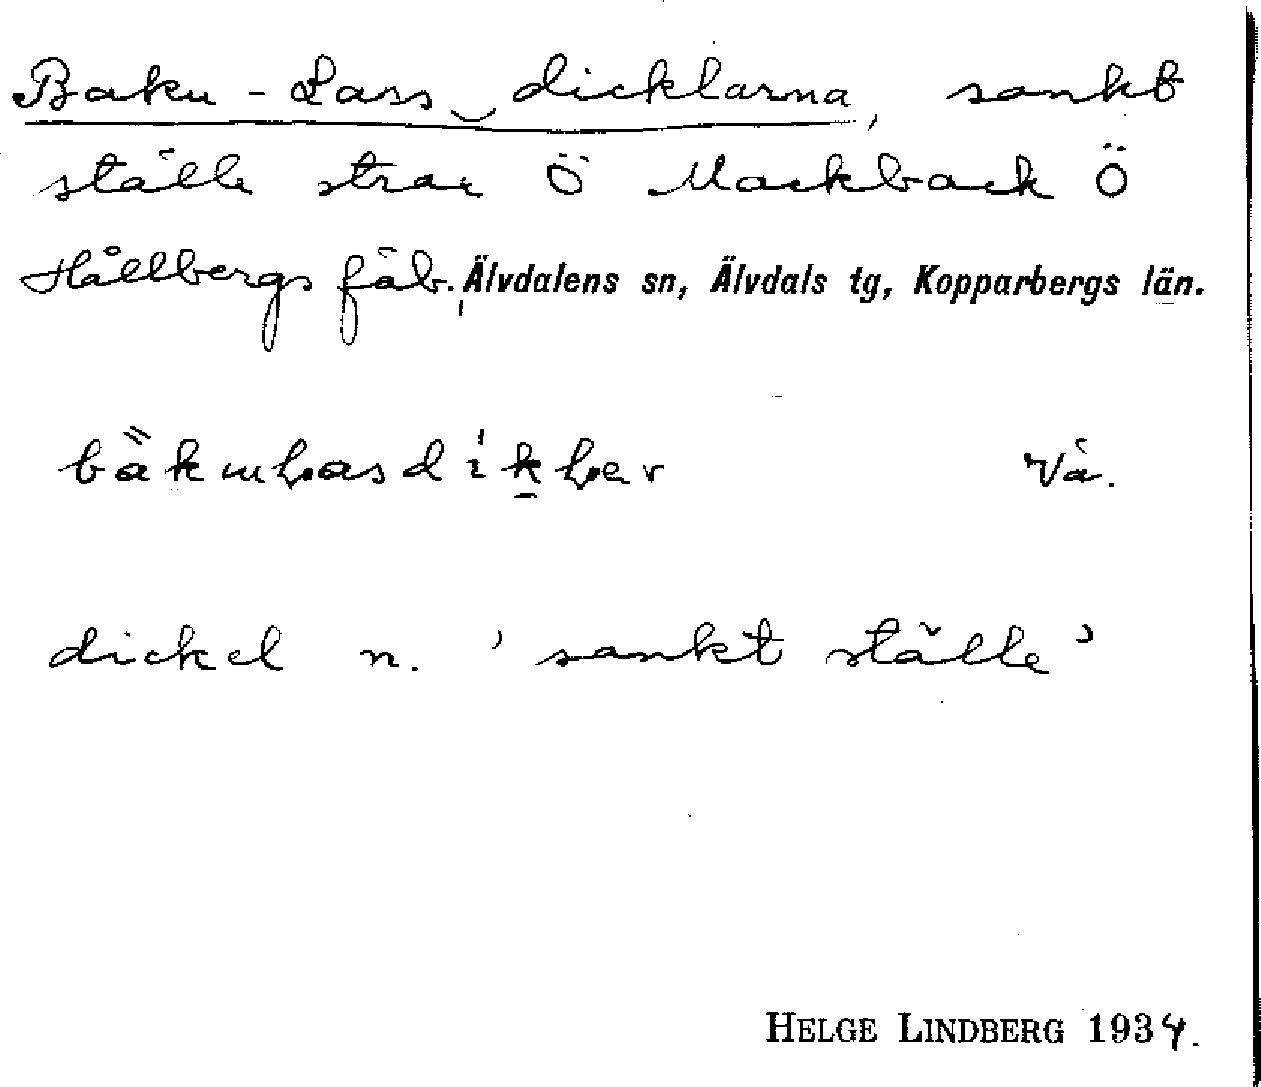 Baku-Lass dicklarna, sankt
ställe strax Ö Mackback Ö
Hållbergs fäb. Älvdalens sn, Älvdals tg, Kopparbergs län.
Vå.
dickel n. 'sankt ställe'
HELGE LINDBERG 1934.